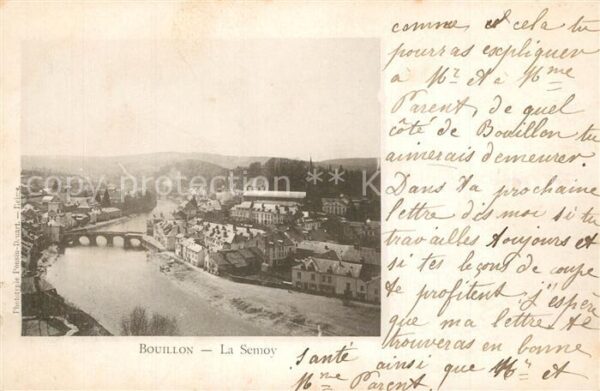 comme et cela tu
pourras expliquer
à Mr et à Mme
Parent, de quel
côté de Bouillon tu
aimerais demeurer.
Dans ta prochaine
lettre dis moi si tu
travailles toujours et
si tes leçons de coupe
te profitent j'espère
que ma lettre te
trouveras en bonne
santé ainsi que Mr et
Mme Parent
BOUILLON — La Semoy
copy protection ***